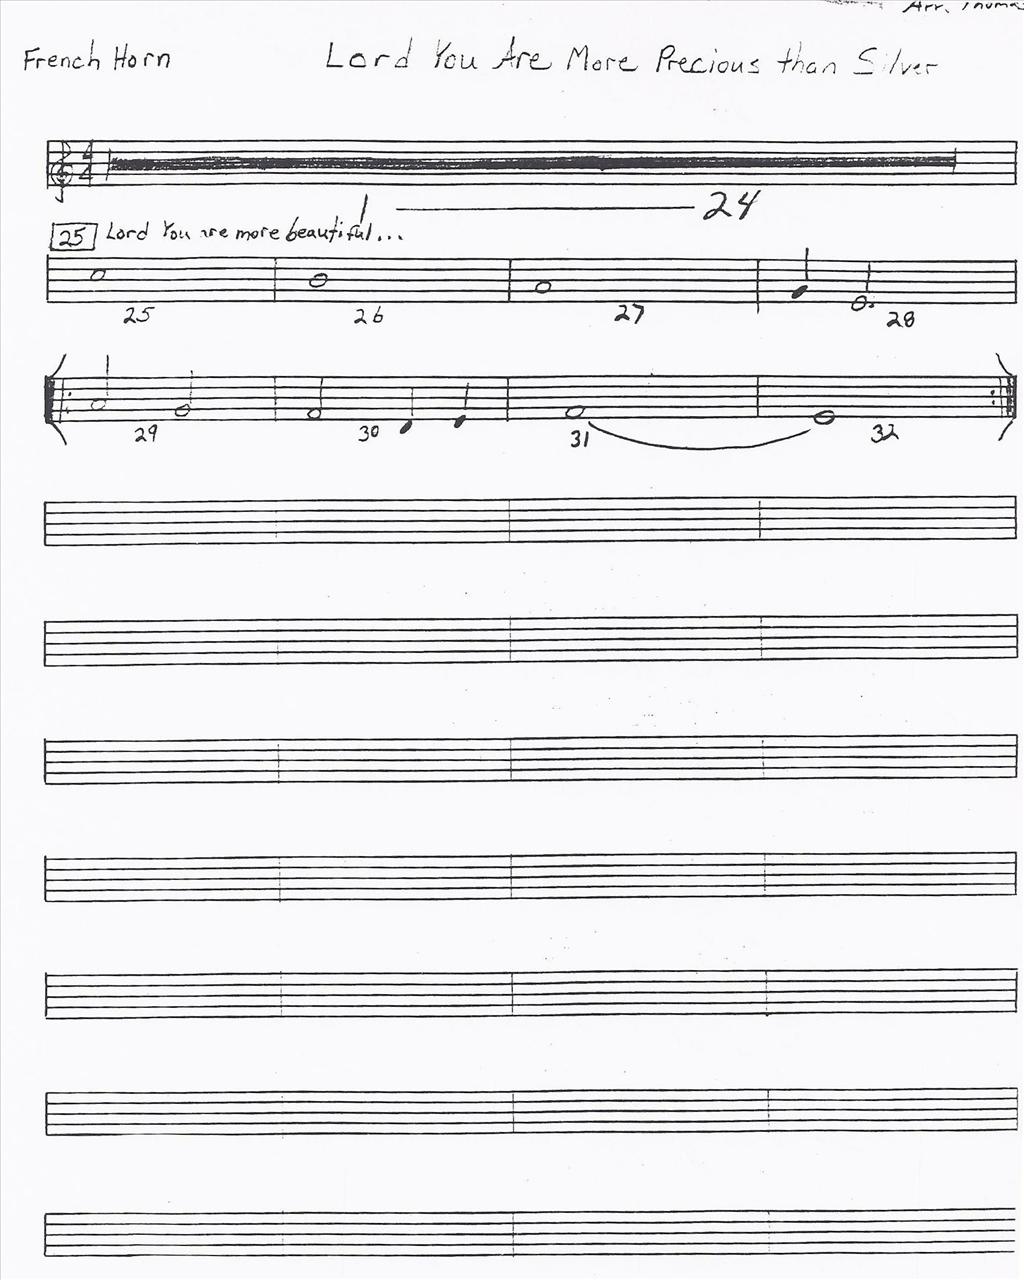 Arr. Thomas
French Horn Lord You Are More Precious than Silver
4
4
1 24
25 Lord You are more beautiful...
25 26 27 28
29 30 31 32